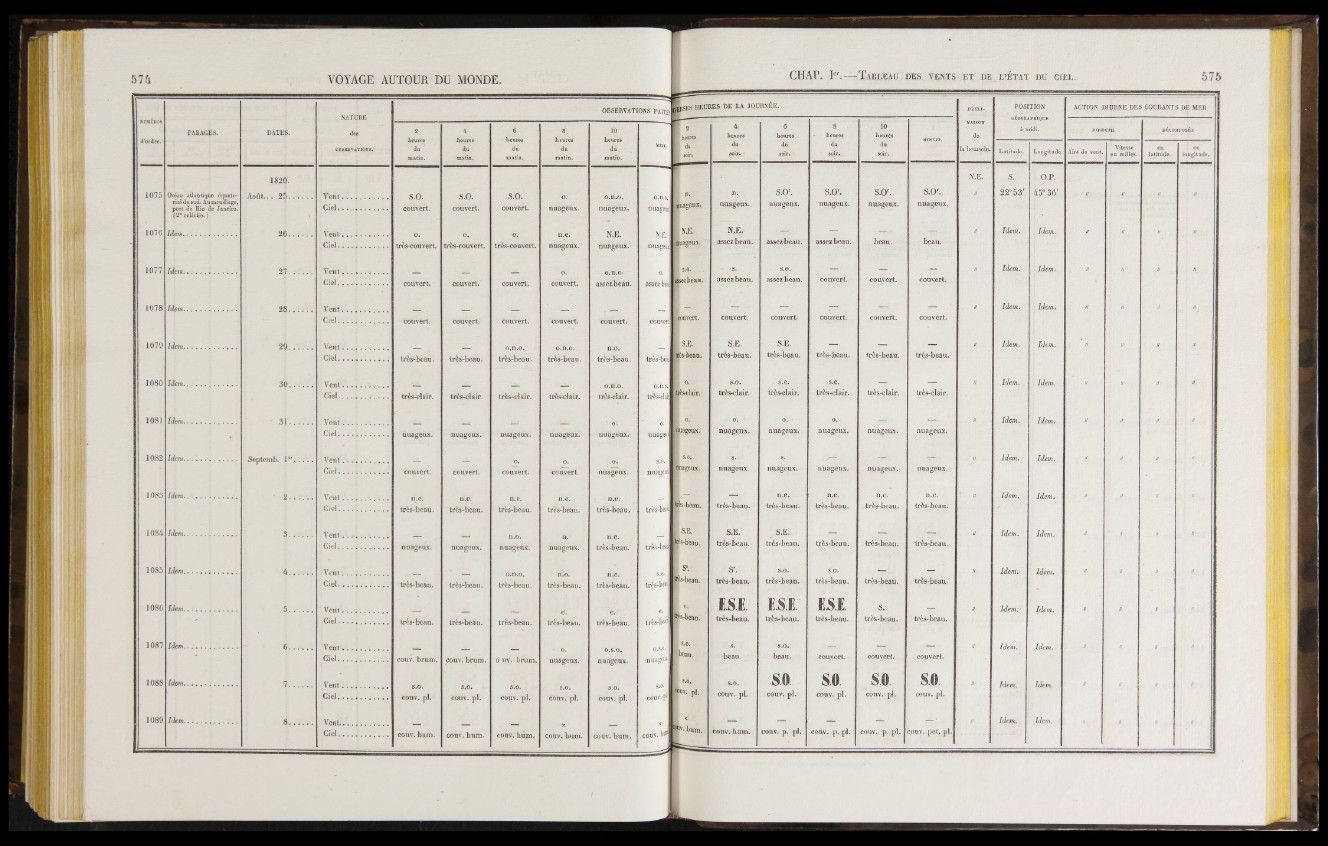 574 VOYAGE AUTOUR DU MONDE.
CHAP. Ier.—TABLEAU DES VENTS ET DE L'ÉTAT DU CIEL. 575
NUMÉROS d'ordre. PARAGES. DATES. NATURE des OBSERVATIONS.
OBSERVATIONS HEURES DE LA JOURNÉE.
2 heures du matin. 4 heures du matin. 6 heures du matin. 8 heures du matin. 10 heures du matin.
2 heures du soir. 4 heures du soir. 6 heures du soir. 8 heures du soir. 10 heures du soir. MINUIT.
de la boussole. POSITION GÉOGRAPHIQUE à midi. Latitude. Longitude.
ACTION DIURNE DES COURANTS DE MER
Aire de vent. Vitesse en milles. en latitude. en longitude.
1820. N.E. S. O.P.
1075 Océan atlantique équatorial du sud. Au mouillage, port de Rio de Janeiro. (2e relâche.) Août... 25...... Vent S.O. S.O. S.O. o. o.n.o. n. n. S.Oe. S.Oe. S.Oe. S.Oe. 22°53' 45°36'
Ciel couvert. couvert. couvert. nuageux. nuageux. nuageux. nuageux. nuageux. nuageux. nuageux. nuageux.
1076 Idem. 26...... Vent o. o. o. n.e. N.E. N.E. N.E. N.E. — — — — Idem. Idem.
Ciel très-couvert. très-couvert. très-couvert. nuageux. nuageux. nuageux. assez beau. assez beau. assez beau. beau. beau.
1077 Idem. 27...... Vent — — — o. o.n.o. o. s.o. s. s.o. — — — Idem. Idem.
Ciel couvert. couvert. couvert. couvert. assez beau. assez beau. assez beau. couvert. couvert. couvert.
1078 Idem. 28...... Vent — — — — — — — — — — — — Idem. Idem.
Ciel couvert. couvert. couvert. couvert. couvert. couvert. couvert. couvert. couvert. couvert. couvert.
1079 Idem. 29...... Vent — — o.n.o. o.n.o. n.o. — S.E. S.E. S.E. — — — Idem. Idem.
Ciel très-beau. très-beau. très-beau. très-beau. très-beau. très-beau. très-beau. très-beau. très-beau. très-beau. très-beau.
1080 Idem. 30...... Vent — — — — o.n.o. o. s.o. s.e. s.e. — — Idem. Idem.
Ciel très-clair. très-clair. très-clair. très-clair. très-clair. très-clair. très-clair. très-clair. très-clair. très-clair. très-clair.
1081 Idem. 31...... Vent — — — — o. o. o. o. o. o. — — Idem. Idem.
Ciel nuageux. nuageux. nuageux. nuageux. nuageux. nuageux. nuageux. nuageux. nuageux. nuageux. nuageux.
1082 Idem. Septemb. 1er..... Vent — — o. o. o. s.o. s. s. — — — Idem. Idem.
Ciel couvert. couvert. couvert. couvert. nuageux. nuageux. nuageux. nuageux. nuageux. nuageux. nuageux.
1083 Idem. 2...... Vent n.e. n.e. n.e. n.e. n.e. — — — n.e. n.e. n.e. n.e. Idem. Idem.
Ciel très-beau. très-beau. très-beau. très-beau. très-beau. très-beau. très-beau. très-beau. très-beau. très-beau. très-beau.
1084 Idem. 3...... Vent — — n.o. n. n.e. — S.E. S.E. S.E. — — — Idem. Idem.
Ciel nuageux. nuageux. nuageux. nuageux. très-beau. très-beau. très-beau. très-beau. très-beau. très-beau. très-beau.
1085 Idem. 4...... Vent — — o.n.o. n.o. n.e. Se. Se. s.o. s.o. — — Idem. Idem.
Ciel très-beau. très-beau. très-beau. très-beau. très-beau. très-beau. très-beau. très-beau. très-beau. très-beau. très-beau.
1086 Idem. 5...... Vent — — — e. e. e. e. E.S.E. E.S.E. E.S.E. s. — Idem. Idem.
Ciel très-beau. très-beau. très-beau. très-beau. très-beau. très-beau. très-beau. très-beau. très-beau. très-beau. très-beau.
1087 Idem. 6...... Vent — — — o. o.s.o. s.o. s. s.o. — — — Idem. Idem.
Ciel couv. brum. couv. brum. couv. brum. nuageux. nuageux. beau. beau. couvert. couvert. couvert.
1088 Idem. 7...... Vent s.o. s.o. s.o. s.o. s.o. s.o. s.o. s.o. S.O. S.O. S.O. S.O. Idem. Idem.
Ciel couv. pl. couv. pl. couv. pl. couv. pl. couv. pl. couv. pl. couv. pl. couv. pl. couv. pl. couv. pl. couv. pl.
1089 Idem. 8...... Vent — — — s. — s. s. — — — — — Idem. Idem.
Ciel couv. hum. couv. hum. couv. hum. couv. hum. couv. hum. couv. hum. couv. hum. couv. p. pl. couv. p. pl. couv. p. pl. couv. pet. pl.